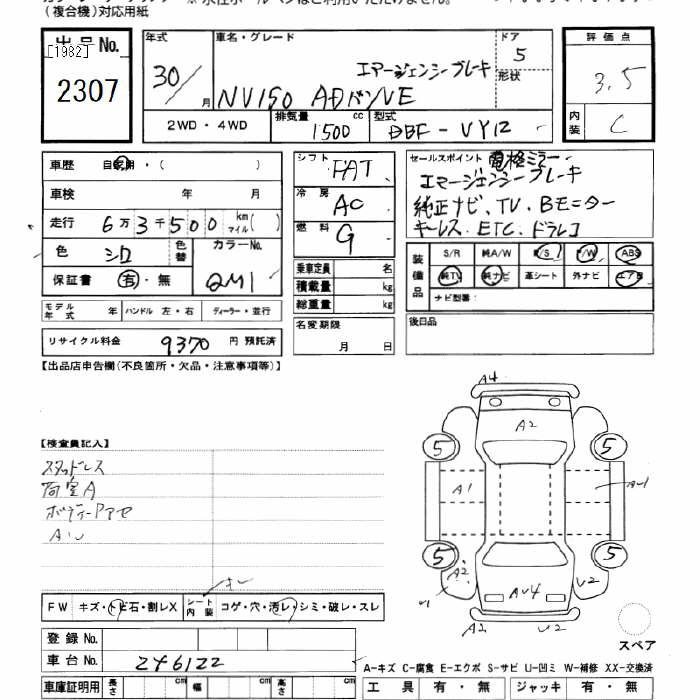 (複合機)対応用紙
出品No.
[1982]
2307
年式 30/ 月
車名・グレード エマージェンシーブレーキ
NV150 ADバンVE
ドア 5
形状
2WD・4WD
排気量 1500 cc
型式 DBF-VY12
評価点
3.5
内装 C
車歴 自家用・( )
車検 年 月
走行 6万3千500 km マイル( )
色 シロ 色替 カラーNo.
保証書 有・無 QM1
モデル年式 年 ハンドル 左・右 ディーラー・並行
リサイクル料金 9370円 預託済
シフト FAT
冷房 AC
燃料 G
乗車定員 名
積載量 kg
総重量 kg
名変期限
月 日
セールスポイント 電格ミラー
エマージェンシーブレーキ
純正ナビ、TV、Bモニター
キーレス、ETC、ドラレコ
装備品
S/R 純A/W P/S P/W ABS
純TV 純ナビ 革シート 外ナビ エアB
ナビ型番:
後日品
【出品店申告欄(不良箇所・欠品・注意事項等)】
【検査員記入】
スタッドレス
荷室A
A4
A2
5 5
A1
5 5
A2
AU4
U2
A2
U2
スペア
FW キズ・トビ石・割レX シート内装 コゲ・穴・汚レ・シミ・破レ・スレ
登録No.
車台No. 246122
車庫証明用 長さ cm 幅 cm 高さ cm
A-キズ C-腐食 E-エクボ S-サビ U-凹ミ W-補修 XX-交換済
工具 有・無 ジャッキ 有・無